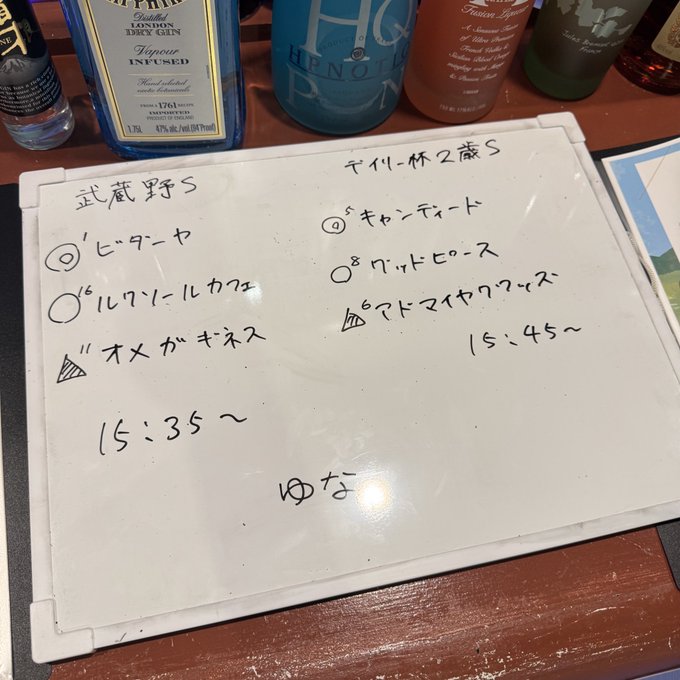 SAPPHIRE
Distilled
LONDON
DRY GIN
Vapour
INFUSED
Hand selected
exotic botanicals
FROM A 1761 RECIPE
IMPORTED
PRODUCT OF ENGLAND
1.75L 47% alc./vol.(94°Proof)
HPNOTIQ
PRODUCT OF
Fusion Liqueur
武蔵野S
◎1 ビダーヤ
○16 ルクソールカフェ
▲11 オメガギネス
15:35〜
デイリー杯2歳S
◎5 キャンディード
○8 グッドピース
▲6 アドマイヤクワッズ
15:45〜
ゆな